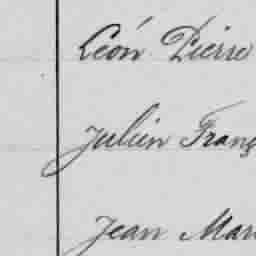 Léon Pierre
Julien Franç
Jean Mar